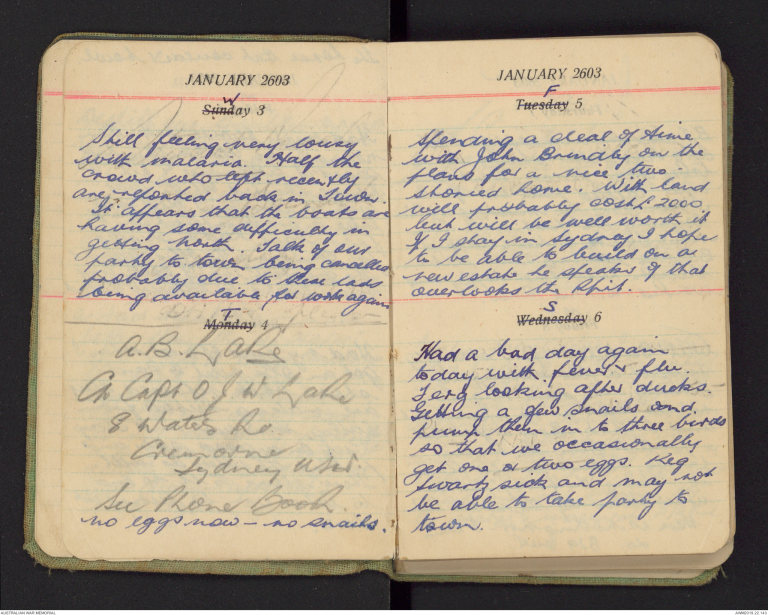 JANUARY 2603
W
Sunday 3
Still feeling very lousy
with malaria. Half the
crowd who left recently
are reported back in
It appears that the boats are
having some difficulty in
getting north. Talk of our
party to town being cancelled
probably due to these lads
being available for work again
T
Monday 4
A.B. Lake
C/o Capt O J W Lake
8 Waters Rd.
Cremorne
Sydney NSW.
See Phone Book.
no eggs now - no snails.
JANUARY 2603
F
Tuesday 5
Spending a deal of time
with John on the
plans for a nice two-
storied home. With land
will probably cost £2000
but will be well worth it
If I stay in Sydney I hope
to be able to build on a
new estate he speaks of that
overlooks the Spit.
S
Wednesday 6
Had a bad day again
today with fever & flu.
looking after ducks -
Getting a few snails and
pump them in to three birds
so that we occasionally
get one or two eggs. Reg
Swarty sick and may not
be able to take party to
town.
AUSTRALIAN WAR MEMORIAL